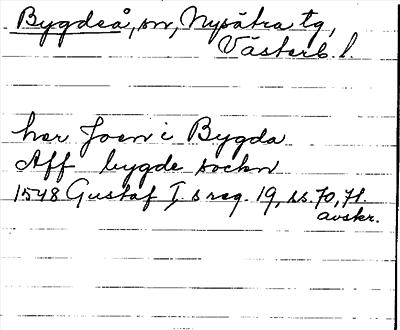 Bygdeå, sn, Nysätra tg,
Västerb. l.
her Joen i Bygda
Aff bygde sockn
1548 Gustaf I.s reg. 19, ss. 70, 71.
avskr.